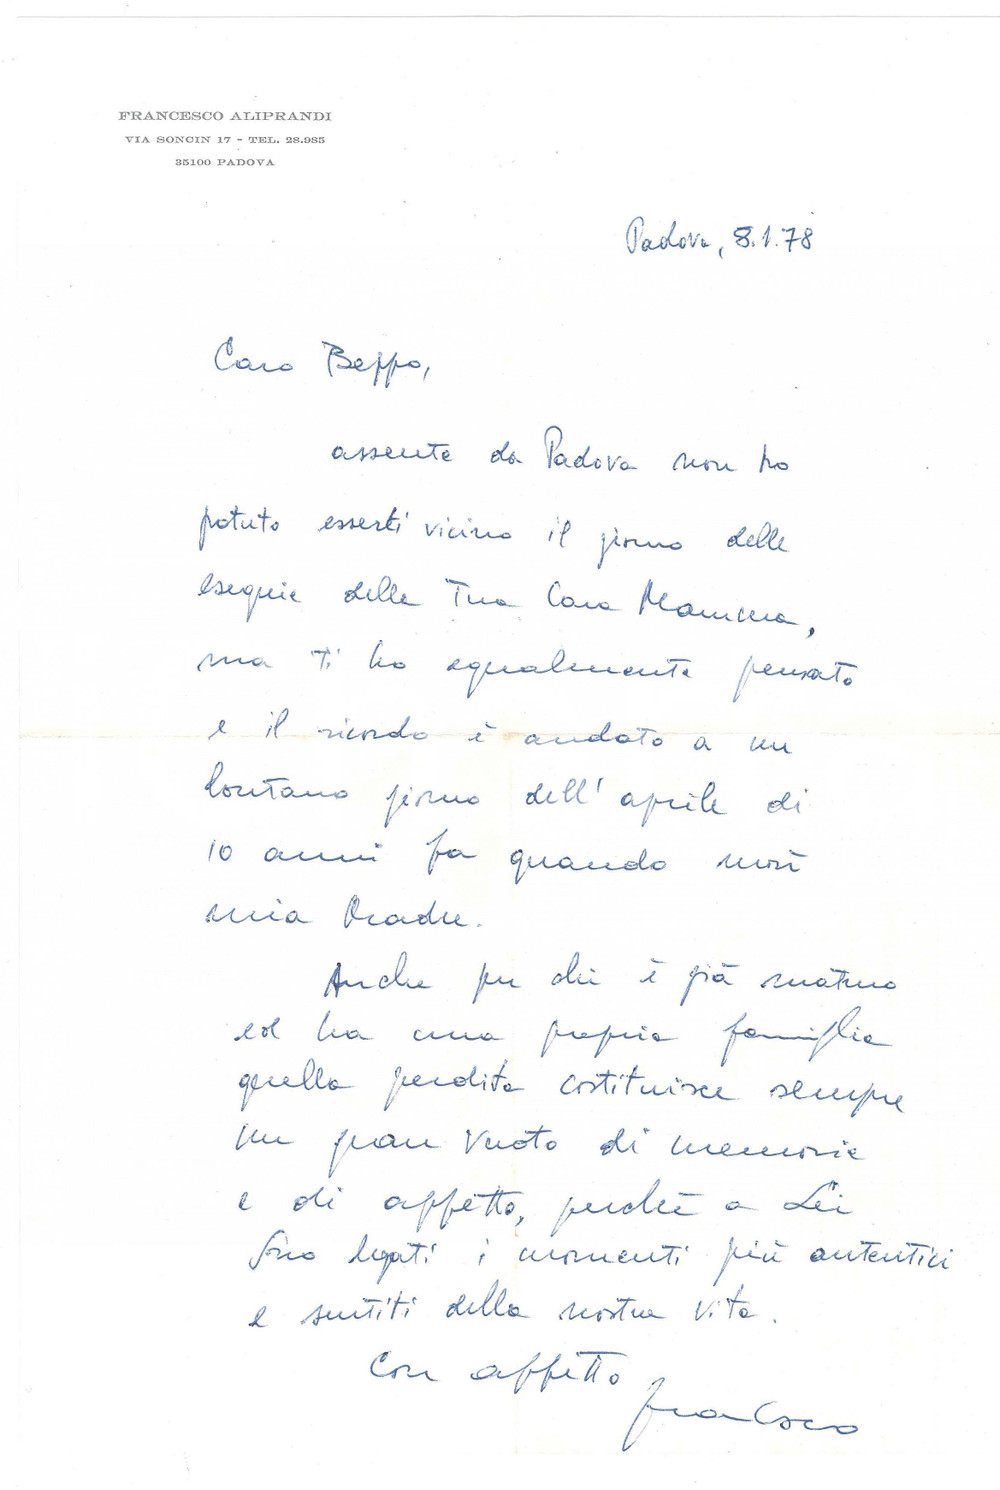 FRANCESCO ALIPRANDI
VIA SONCIN 17 - TEL. 28.985
35100 PADOVA
Padova, 8.1.78
Caro Beppo,
assente da Padova non ho
potuto esserti vicino il giorno delle
esequie della Tua Cara Mamma,
ma Ti ho egualmente pensato
e il ricordo è andato a un
lontano giorno dell'aprile di
10 anni fa quando morì
mia Madre.
Anche per chi è già maturo
ed ha una propria famiglia
quella perdita costituisce sempre
un gran vuoto di memorie
e di affetto, perchè a Lei
sono legati i momenti più autentici
e sentiti della nostra vita.
Con affetto
Francesco